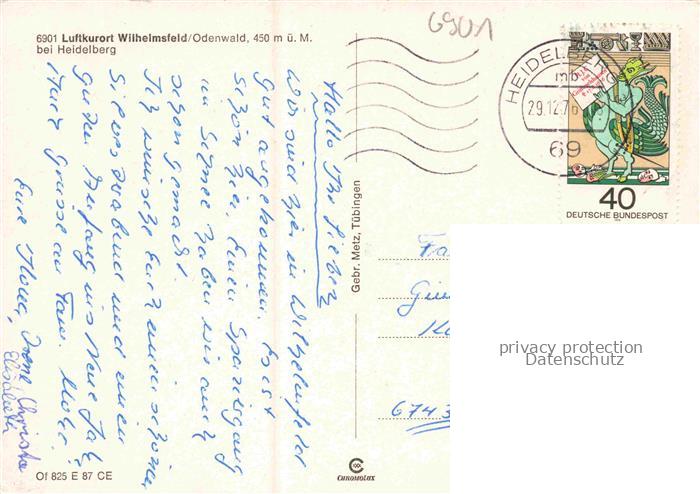 6901 Luftkurort Wilhelmsfeld/Odenwald, 450 m ü. M.
bei Heidelberg
6901
Hallo Ihr Lieben
Wir sind hier in Wilhelmsfeld
Gut angekommen. Es ist
schön hier, Einen Spaziergang
im Schnee haben wir auch
schon gemacht.
Ich wünsche Euch einen schönen
Silvesterabend und einen
guten Anfang ins Neue Jahr
Auch Grüsse an Fam.
Eure Ilona, Christa
Elisabeth
Gebr. Metz, Tübingen
HEIDELBERG
mb
29.12.76
69
40
DEUTSCHE BUNDESPOST
Fa
674
privacy protection
Datenschutz
Of 825 E 87 CE
CHROMOLUX